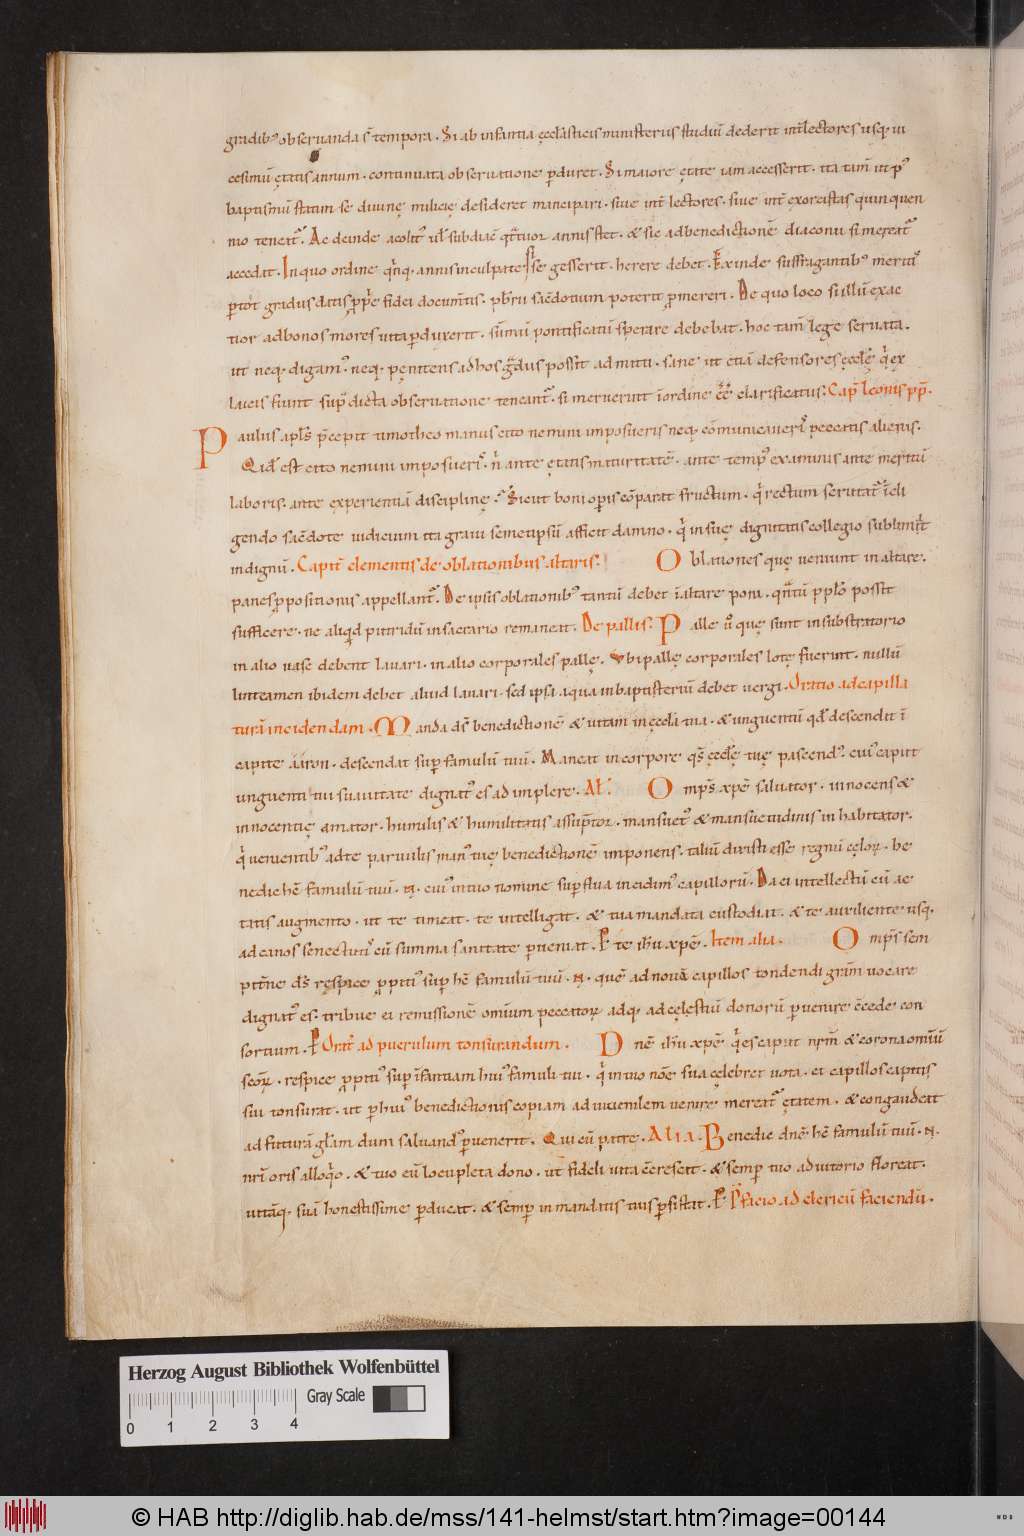 gradib; obseruanda s̄ tempora. Si ab infantia ęcclāsticis ministeriis studiū dederit int̄ lectores usq; ui
cesimū ętatis annum. continuata obseruatione p̱duret. Si maiore ętate iam accesserit. ita tam̄ ut p᷒
baptismū statim se diuinę milicię desideret mancipari. siue int̄ lectores. siue int̄ exorcistas quinquen
nio teneat᷒. Ac deinde acolit᷒ ul̄ subdiac̄ q̄ttuor annis stet. & sic ad benedictionē diaconii si mereat᷒
accedat. In quo ordine q̄nq; annis inculpate si se gesserit. herere debet. Exinde suffragantib; meritis
p̱ tot gradus datis p̱p̄e fidei documtis. pb̄rii sac̄dotium poterit p̱mereri. De quo loco si illū exac
tior ad bonos mores uita p̱duxerit. sūmū pontificatū sperare debebat. hoc tam̄ lege seruata.
ut neq; digam᷒. neq; pęnitens ad hos gradus possit admitti. sane ut etiā defensores ęccl̄ę q̄ ex
laicis fiunt sup̱dicta obseruatione teneant᷒. si meruerint ī ordine ēē clarificatus. Cap̄ leonis pp̄.
Paulus ap̄ls p̄cepit timotheo manus cito nemini imposueris neq; cōmunicauer᷒ peccatis alienis.
Qid̄ est cito nemini imposuer᷒. n̄ ante ętatis maturitatē. ante temp᷒ examinis ante meritū
laboris. ante experientiā disciplinę. Sicut boni op̱is cōparat fructum. q̄ rectum seruat̄ in eli
gendo sac̄dote iudicium ita graui semetipsū afficit damno. q̄ in suę dignitatis collegio sublimat
indignū. Capit̄ clementis de oblationibus altaris. Oblationes quę ueniunt in altare.
panes p̱positionis appellant᷒. De ipsis oblationib; tantū debet ī altare poni. qntū ppl̄o possit
sufficere. ne aliqd putridū in sacrario remaneat. De pallis. Palle ū quę sunt in substratorio
in alio uase debent lauari. in alio corporales pallę. Ubi pallę corporales lotę fuerint. nullū
linteamen ibidem debet aliud lauari. sed ipsa aqua in baptisteriū debet uergi. Oratio ad capilla
turā incidendam. Manda ds̄ benedictionē & uitam in ęccl̄ia tua. & unguentū qd̄ descendit ī
capite aaron. descendat sup̱ famulū tuū. Maneat in corpore qs̄ ęccl̄ę tuę pascend᷒. cui᷒ caput
unguenti tui suauitate dignat᷒ es adimplere. Al̄. Omp̄s xp̄e saluator. innocens &
innocentię amator. humilis & humilitatis assūptor. mansuet᷒ & mansuetudinis inhabitator.
q̄ uenientib; ad te paruulis man᷒ tuę benedictionē imponens. taliū dixisti esse regnū cęlor̄. be
nedic hc̄ famulū tuū. N. cui᷒ in tuo nomine sup̱flua incidim᷒ capillorū. Da ei intellectū cū ae
tatis augmento. ut te timeat. te intelligat. & tua mandata custodiat. & te auxiliente usq;
ad canos senectutis cū summa sanitate p̱ueniat. P̱ te ih̄u xp̄e. Item alia. Omp̄s sem
pitn̄e ds̄ respice p̱piti᷒ sup̱ hc̄ famulū tuū. N. quē ad nouā capillos tondendi grām uocare
dignat᷒ es. tribue ei remissionē omīum peccator̄ adq; ad cęlestiū donorū p̱uenire c̄cede con
sortium. P̱ Orat̄ ad puerulum tonsurandum. Dn̄e ih̄u xp̄e q̄ es caput nr̄m & corona omīū
sc̄or̄. respice p̱piti᷒ sup̱ īfantiam hui᷒ famuli tui. q̄ in tuo nōe sua celebret uota. ei capillos capitis
sui tonsurat. ut p̱ hui᷒ benedictionis copiam ad iuuenilem uenire mereat᷒ ętatem. & congaudeat
ad futurā glām dum saluand᷒ p̱uenerit. Qui cū patre. Alia. Benedic dn̄e hc̄ famulū tuū. N.
nr̄i oris alloq̄o. & tuo eū locupleta dono. ut fideli uita c̄crescat. & semp̱ tuo adiutorio floreat.
uitāq; suā honestissime p̱ducat. & semp̱ in mandatis tuis p̱sistat. P̱ P̄facio ad clericū faciendū.
Herzog August Bibliothek Wolfenbüttel
Gray Scale
0 1 2 3 4
© HAB http://diglib.hab.de/mss/141-helmst/start.htm?image=00144